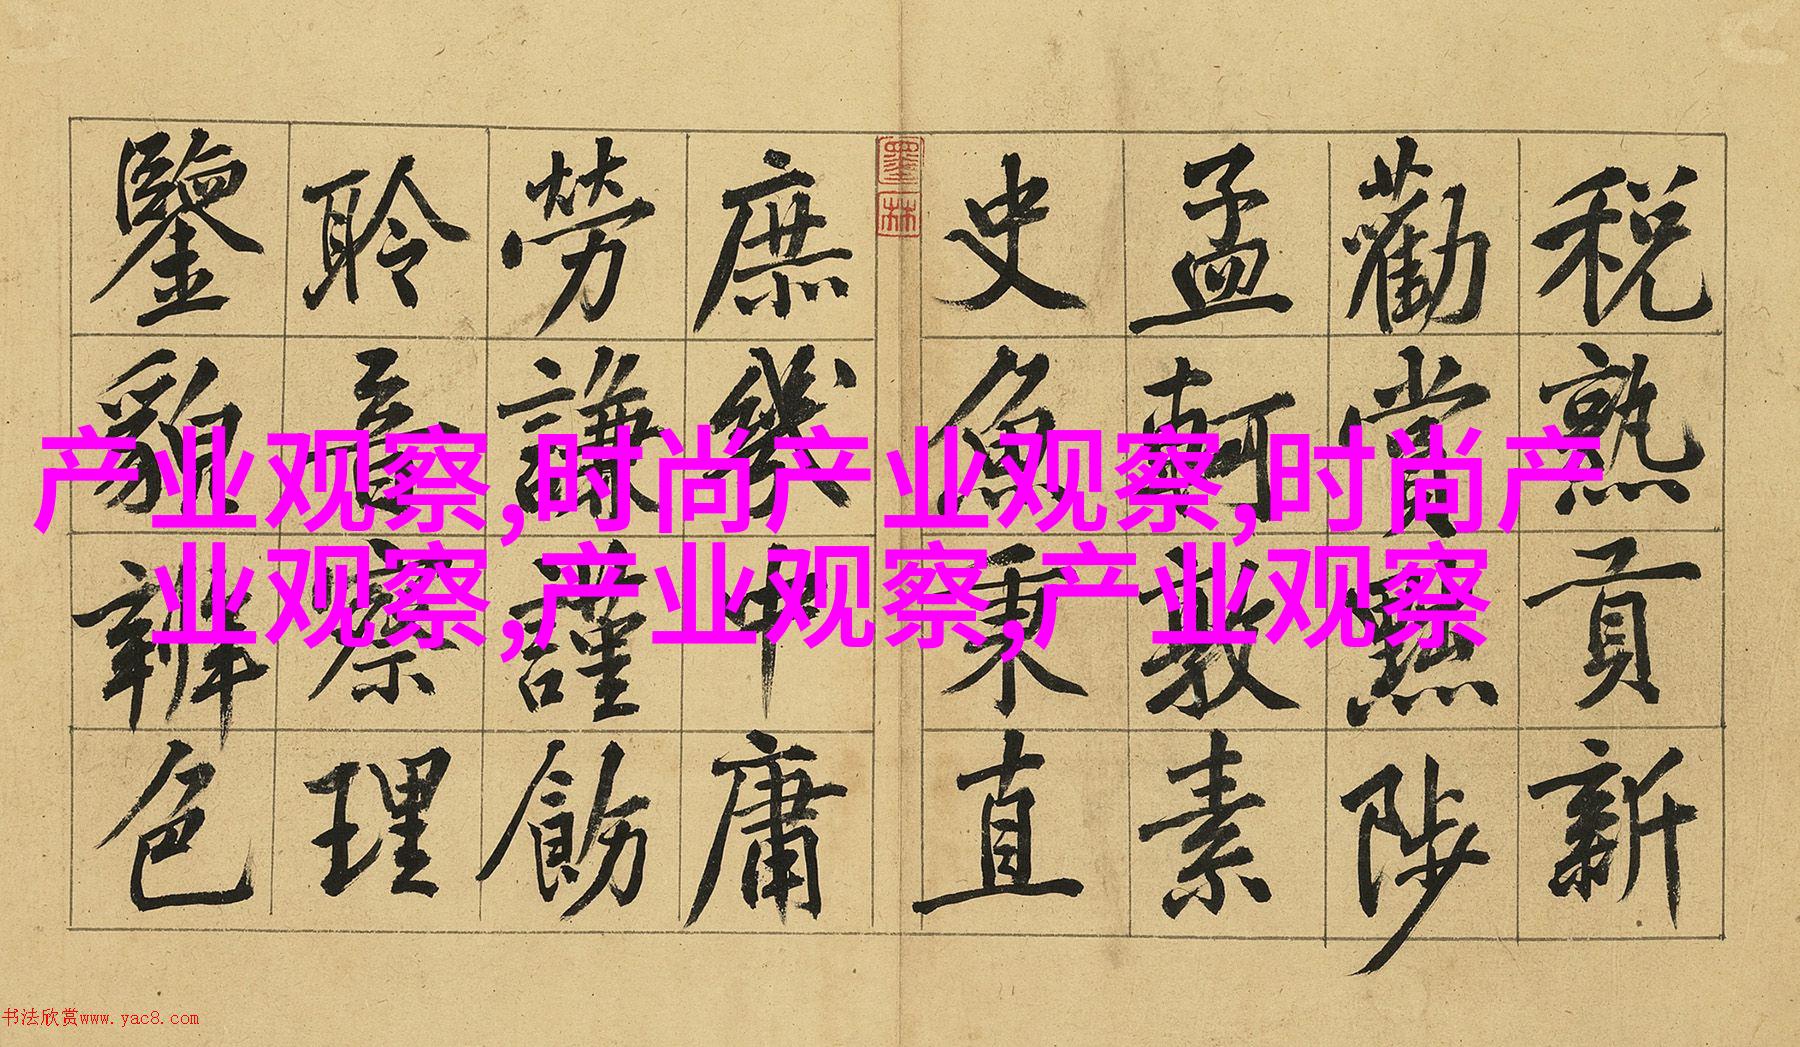 税熟貢新
勸賞黜陟
孟軻敦素
史魚秉直
庶幾中庸
勞謙謹飭
聆音察理
鑒貌辨色
墨林
产业观察,时尚产业观察,时尚产
业观察,产业观察,产业观察
书法欣赏www.yac8.com